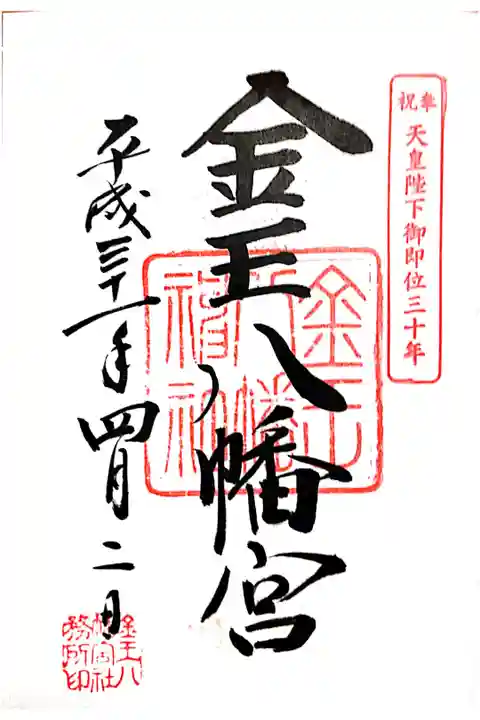 奉祝
天皇陛下御即位三十年
金王八幡宮
金王八幡神社
平成三十一年四月二日
金王八
幡宮社
務所印